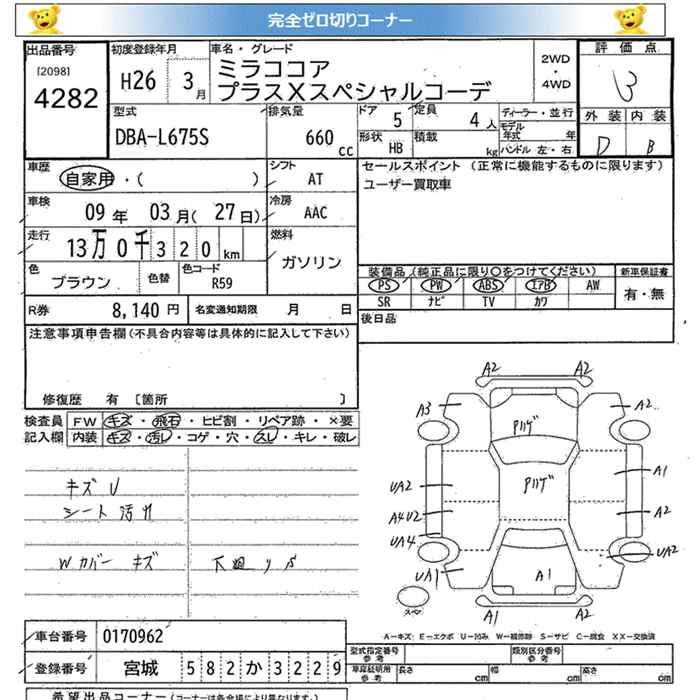 完全ゼロ切りコーナー
出品番号 初度登録年月 車名・グレード 評価点
[2098] 4282 H26 3月 ミラココア 2WD ・ 4WD 3
プラスXスペシャルコーデ
外装 内装
型式 排気量 ドア 5 定員 4人 ディーラー・並行
DBA-L675S 660cc 形状 HB 積載 kg モデル年式 年 D B
ハンドル 左・右
車歴 自家用・( ) シフト AT セールスポイント (正常に機能するものに限ります)
ユーザー買取車
車検 09年 03月(27日) 冷房 AAC
走行 13万0千320km 燃料 ガソリン
色 ブラウン 色替 色コード R59
装備品(純正品に限り○をつけてください) 新車保証書
PS PW ABS エアB AW 有・無
SR ナビ TV カワ
R券 8,140円 名変通知期限 月 日 後日品
注意事項申告欄(不具合内容等は具体的に記入して下さい)
修復歴 有 [箇所 ]
検査員記入欄 FW キズ・飛石・ヒビ割・リペア跡・×要
内装 キズ・汚レ・コゲ・穴・スレ・キレ・破レ
キズ U
シート汚れ
Wカバー キズ 下廻り S
A2 A2
A3 A2
Pハゲ
Pハゲ A1
UA2
A4U2 A2
UA4 UA2
UA1 A1
スペア A1 A2
A-キズ E-エクボ U-凹み W-補修跡 S-サビ C-腐食 XX-交換済
車台番号 0170962
型式指定番号 参考 類別区分番号 参考
登録番号 宮城 582 か 3229 車庫証明用 参考 長さ cm 幅 cm 高さ cm
希望出品コーナー(コーナーは各会場により異なります)